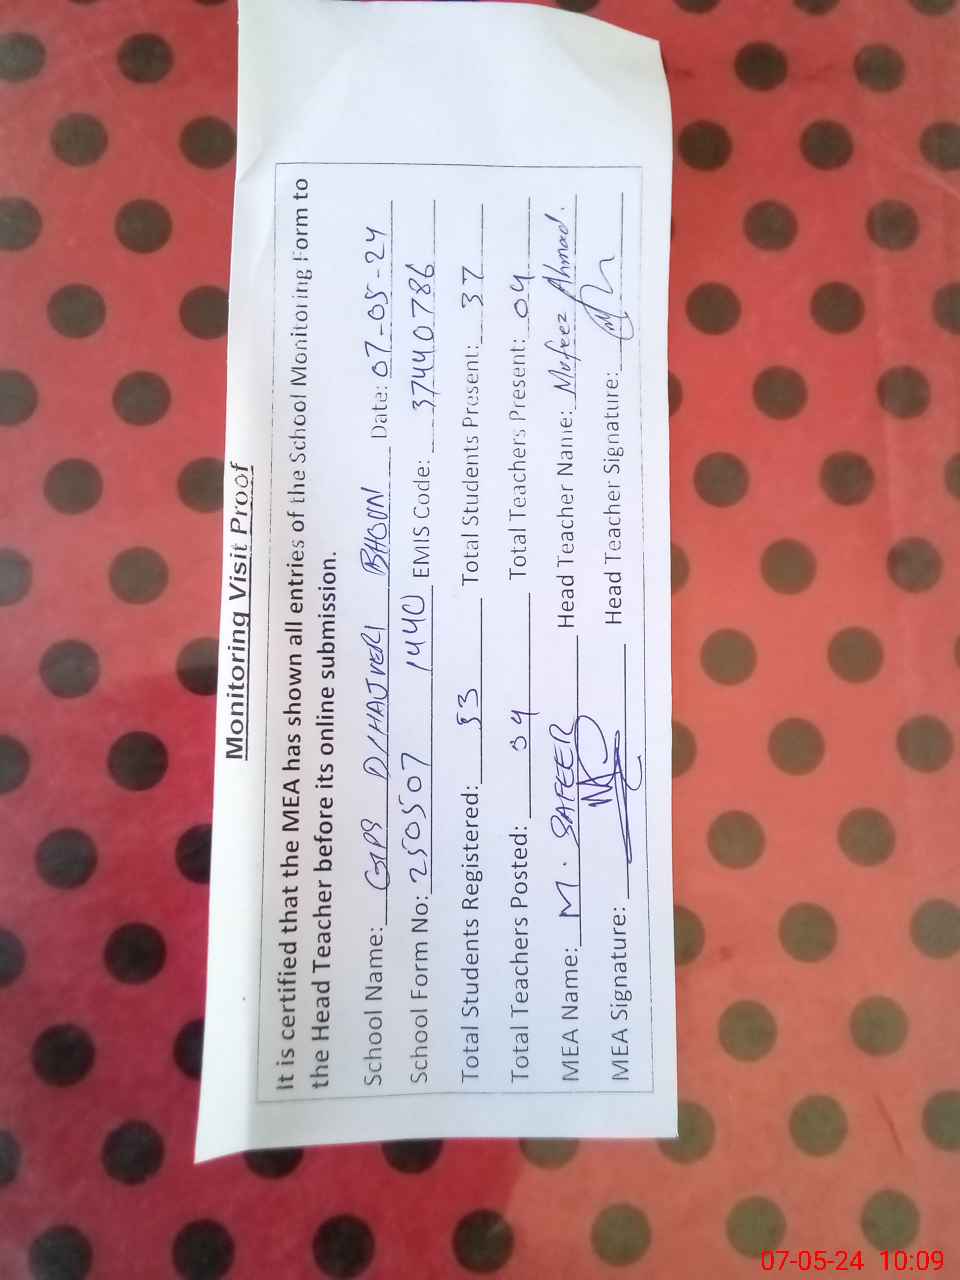 Monitoring Visit Proof
It is certified that the MEA has shown all entries of the School Monitoring Form to
the Head Teacher before its online submission.
School Name: GPS D/HAJVERI BHOUN Date: 07-05-24
School Form No: 250507 1440 EMIS Code: 37440786
Total Students Registered: 53 Total Students Present: 37
Total Teachers Posted: 04 Total Teachers Present: 04
MEA Name: M. SAFEER Head Teacher Name: Ahmad.
MEA Signature: Head Teacher Signature:
07-05-24 10:09